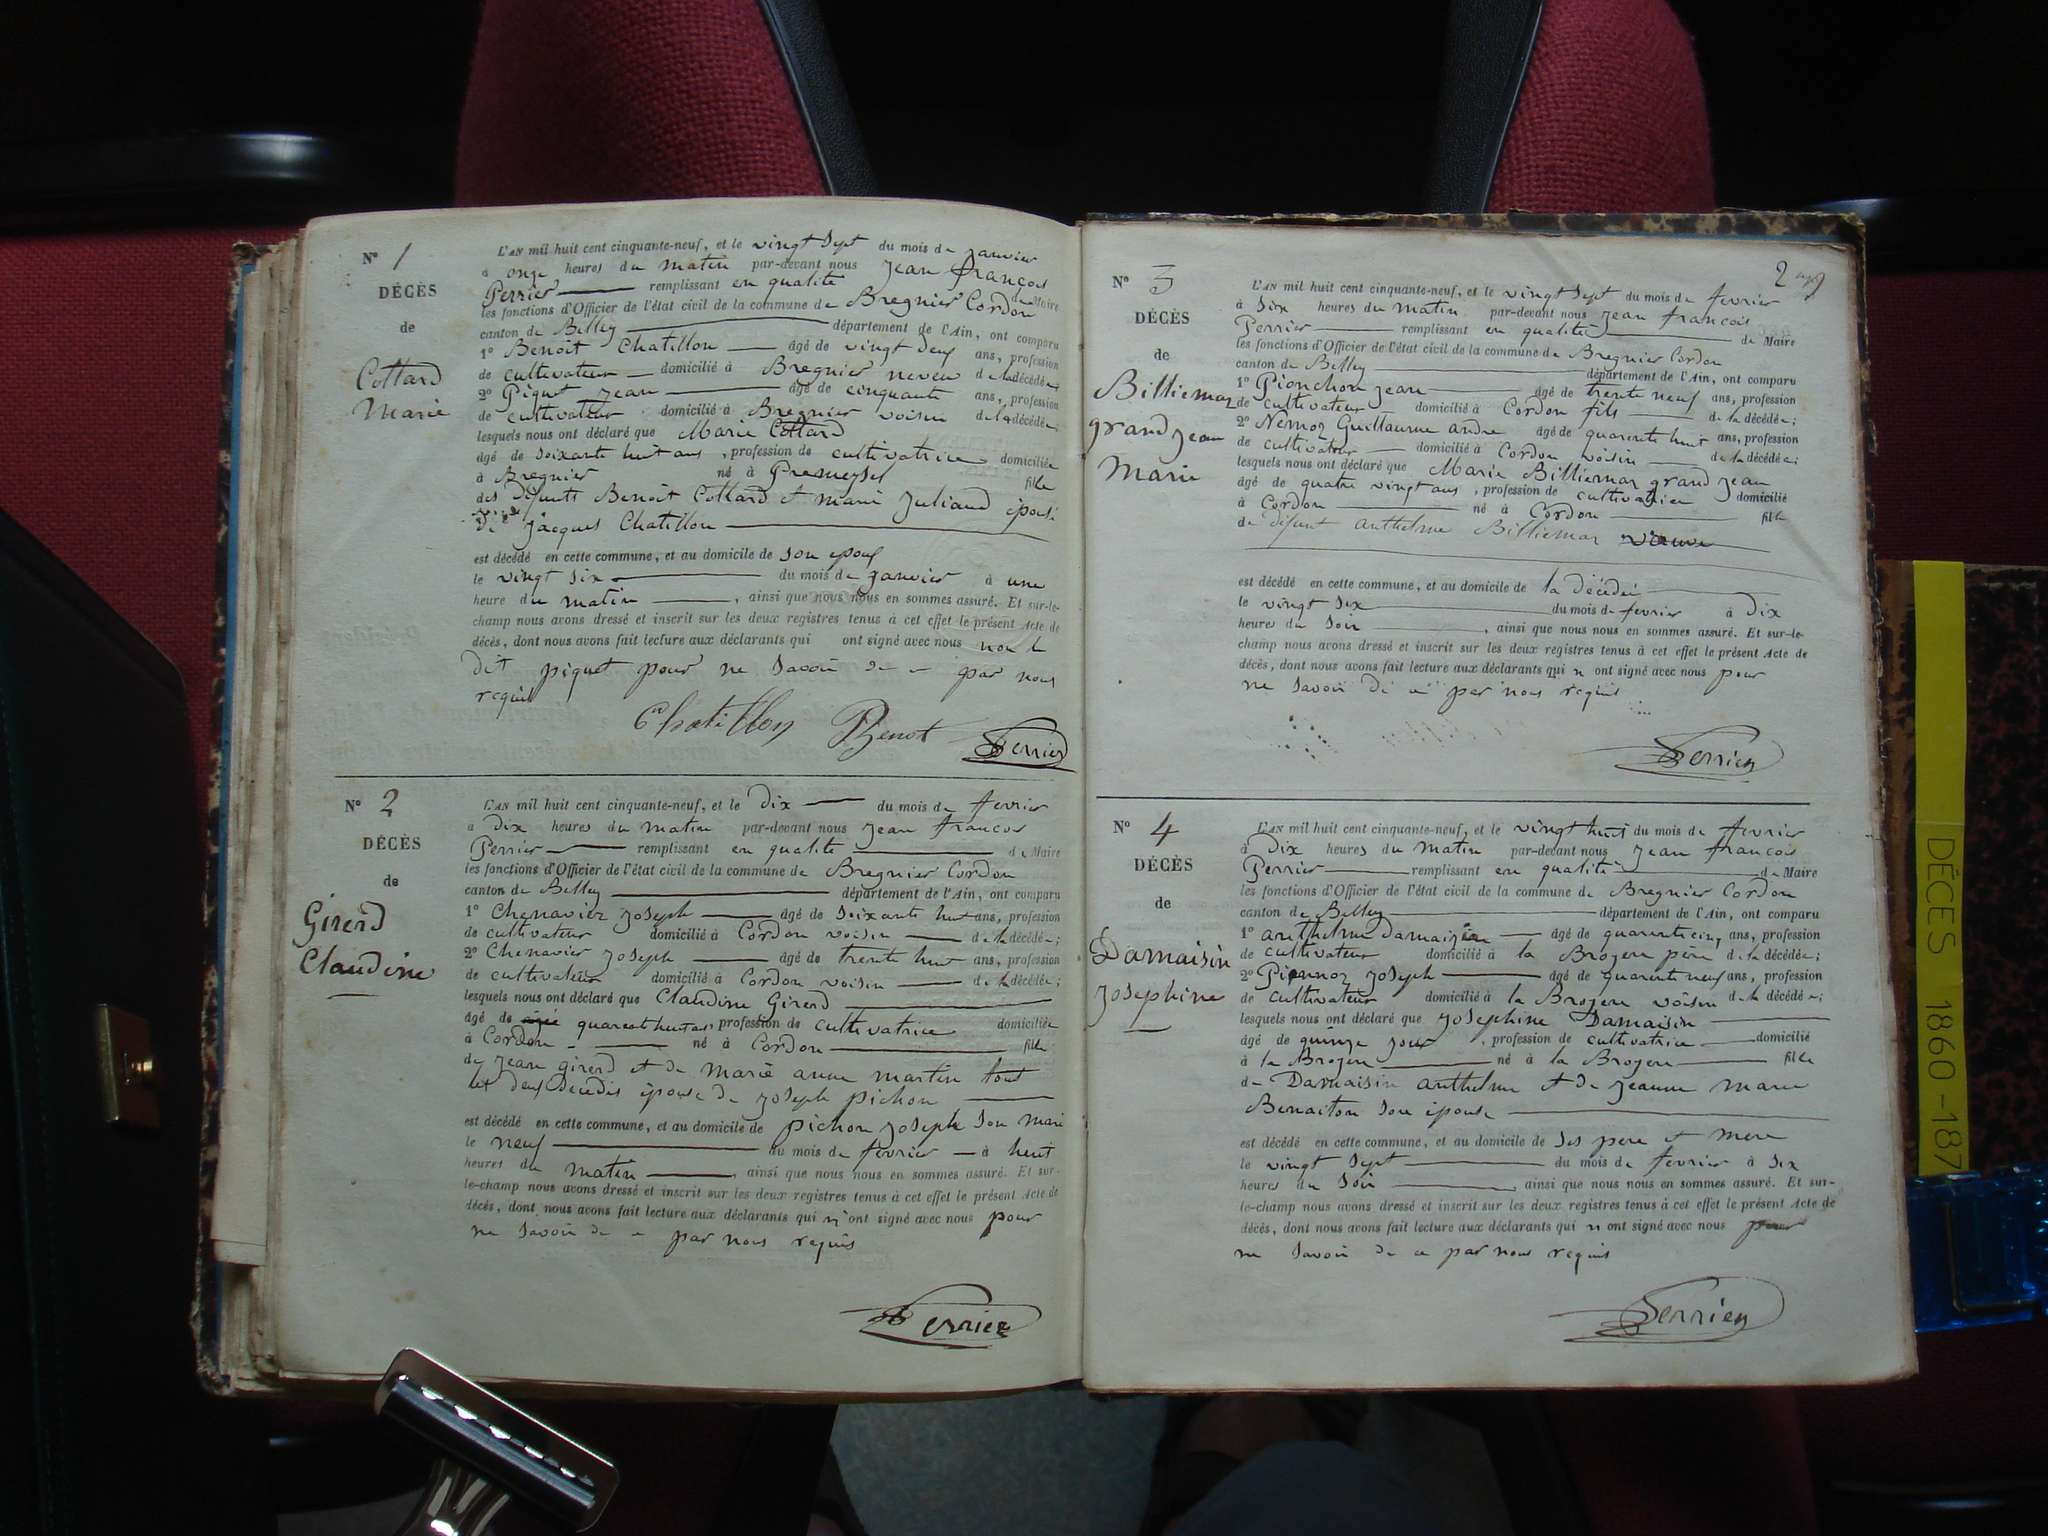 N° 1
DÉCÈS
de
Cottard
Marie
L'AN mil huit cent cinquante-neuf, et le vingt Sept du mois de janvier
à onze heures du matin par-devant nous Jean françois
Perrier remplissant en qualité de Maire
les fonctions d'Officier de l'état civil de la commune de Bregnier Cordon
canton de Belley département de l'Ain, ont comparu
1° Benoit Chatillon âgé de vingt deux ans, profession
de cultivateur domicilié à Bregnier neveu de la décédée
2° Piguet jean âgé de cinquante ans, profession
de cultivateur domicilié à Bregnier voisin de la décédée
lesquels nous ont déclaré que Marie Cottard
âgé de Soixante huit ans, profession de cultivatrice domiciliée
à Bregnier né à Premeysel fille
des défunts Benoit Cottard et marie Juliand épouse
de Jacques Chatillon
est décédé en cette commune, et au domicile de son epoux
le vingt six du mois de janvier à une
heure du matin, ainsi que nous nous en sommes assuré. Et sur-le-
champ nous avons dressé et inscrit sur les deux registres tenus à cet effet le présent Acte de
décès, dont nous avons fait lecture aux déclarants qui ont signé avec nous non le
dit piguet pour ne Savoir de ce par nous
requis
Chatillon Benot Perrier
N° 2
DÉCÈS
de
Girerd
Claudine
L'AN mil huit cent cinquante-neuf, et le Dix du mois de fevrier
à Dix heures du matin par-devant nous Jean francois
Perrier remplissant en qualité de Maire
les fonctions d'Officier de l'état civil de la commune de Bregnier Cordon
canton de Belley département de l'Ain, ont comparu
1° Chenavier Joseph âgé de Soixante huit ans, profession
de cultivateur domicilié à Cordon voisin de la décédée;
2° Chenavier Joseph âgé de trente huit ans, profession
de cultivateur domicilié à Cordon voisin de la décédée;
lesquels nous ont déclaré que Claudine Girerd
âgé de quarante huit ans profession de cultivatrice domiciliée
à Cordon né à Cordon fille
de Jean girerd et de Marie anne martin tout
les deux décédés épouse de Joseph pichon
est décédé en cette commune, et au domicile de pichon Joseph Son mari
le neuf du mois de fevrier à huit
heures du matin, ainsi que nous nous en sommes assuré. Et sur-
le-champ nous avons dressé et inscrit sur les deux registres tenus à cet effet le présent Acte de
décès, dont nous avons fait lecture aux déclarants qui n'ont signé avec nous pour
ne Savoir de ce par nous requis
Perrier
2
N° 3
DÉCÈS
de
Billiemaz
grand jean
Marie
L'AN mil huit cent cinquante-neuf, et le vingt Sept du mois de fevrier
à Dix heures du matin par-devant nous Jean francois
Perrier remplissant en qualité de Maire
les fonctions d'Officier de l'état civil de la commune de Bregnier Cordon
canton de Belley département de l'Ain, ont comparu
1° Pionchon jean âgé de trente neuf ans, profession
de cultivateur domicilié à Cordon fils de la décédée;
2° Nemoz Guillaume andre âgé de quarante huit ans, profession
de cultivateur domicilié à Cordon voisin de la décédée;
lesquels nous ont déclaré que Marie Billiemaz grand jean
âgé de quatre vingt ans, profession de cultivatrice domicilié
à Cordon né à Cordon fille
de défunt anthelme Billiemaz veuve
est décédé en cette commune, et au domicile de la décédée
le vingt six du mois de fevrier à Dix
heures du Soir, ainsi que nous nous en sommes assuré. Et sur-le-
champ nous avons dressé et inscrit sur les deux registres tenus à cet effet le présent Acte de
décès, dont nous avons fait lecture aux déclarants qui n ont signé avec nous pour
ne Savoir de ce par nous requis
Perrier
N° 4
DÉCÈS
de
Damaisin
Josephine
L'AN mil huit cent cinquante-neuf, et le vingt huit du mois de fevrier
à Dix heures du Matin par-devant nous Jean francois
Perrier remplissant en qualité de Maire
les fonctions d'Officier de l'état civil de la commune de Bregnier Cordon
canton de Belley département de l'Ain, ont comparu
1° anthelme Damaizin âgé de quarente cinq ans, profession
de cultivateur domicilié à la Broyere père de la décédée;
2° Joseph âgé de quarente neuf ans, profession
de cultivateur domicilié à la Broyere voisin de la décédée;
lesquels nous ont déclaré que Josephine Damaisin
âgé de quinze jour, profession de cultivatrice domicilié
à la Broyere né à la Broyere fille
de Damaisin anthelme et de Jeanne marie
Benaiton Son épouse
est décédé en cette commune, et au domicile de Ses pere et mere
le vingt Sept du mois de fevrier à Six
heures du Soir, ainsi que nous nous en sommes assuré. Et sur-
le-champ nous avons dressé et inscrit sur les deux registres tenus à cet effet le présent Acte de
décès, dont nous avons fait lecture aux déclarants qui n ont signé avec nous pour
ne Savoir de ce par nous requis
Perrier
DÉCES 1860-187